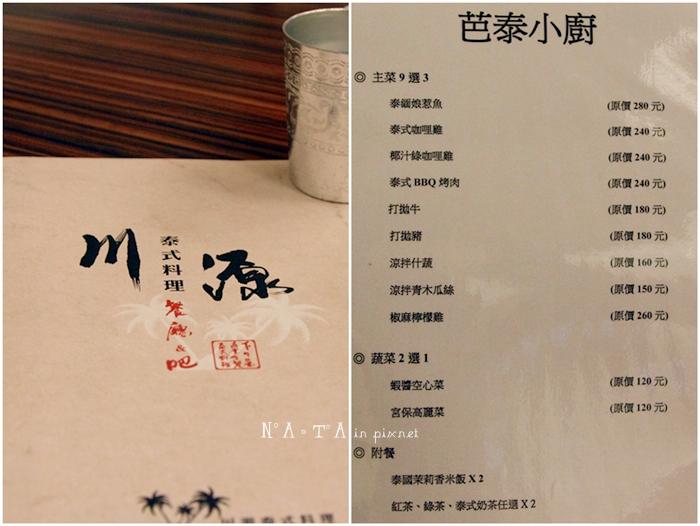 川源
泰式料理
餐廳&吧
川源泰式料理
芭泰小廚
◎ 主菜 9 選 3
泰緬娘惹魚 (原價 280 元)
泰式咖哩雞 (原價 240 元)
椰汁綠咖哩雞 (原價 240 元)
泰式 BBQ 烤肉 (原價 240 元)
打拋牛 (原價 180 元)
打拋豬 (原價 180 元)
涼拌什蔬 (原價 160 元)
涼拌青木瓜絲 (原價 150 元)
椒麻檸檬雞 (原價 260 元)
◎ 蔬菜 2 選 1
蝦醬空心菜 (原價 120 元)
宮保高麗菜 (原價 120 元)
◎ 附餐
泰國茉莉香米飯 X 2
紅茶、綠茶、泰式奶茶任選 X 2
N°A＝T°A in pixnet